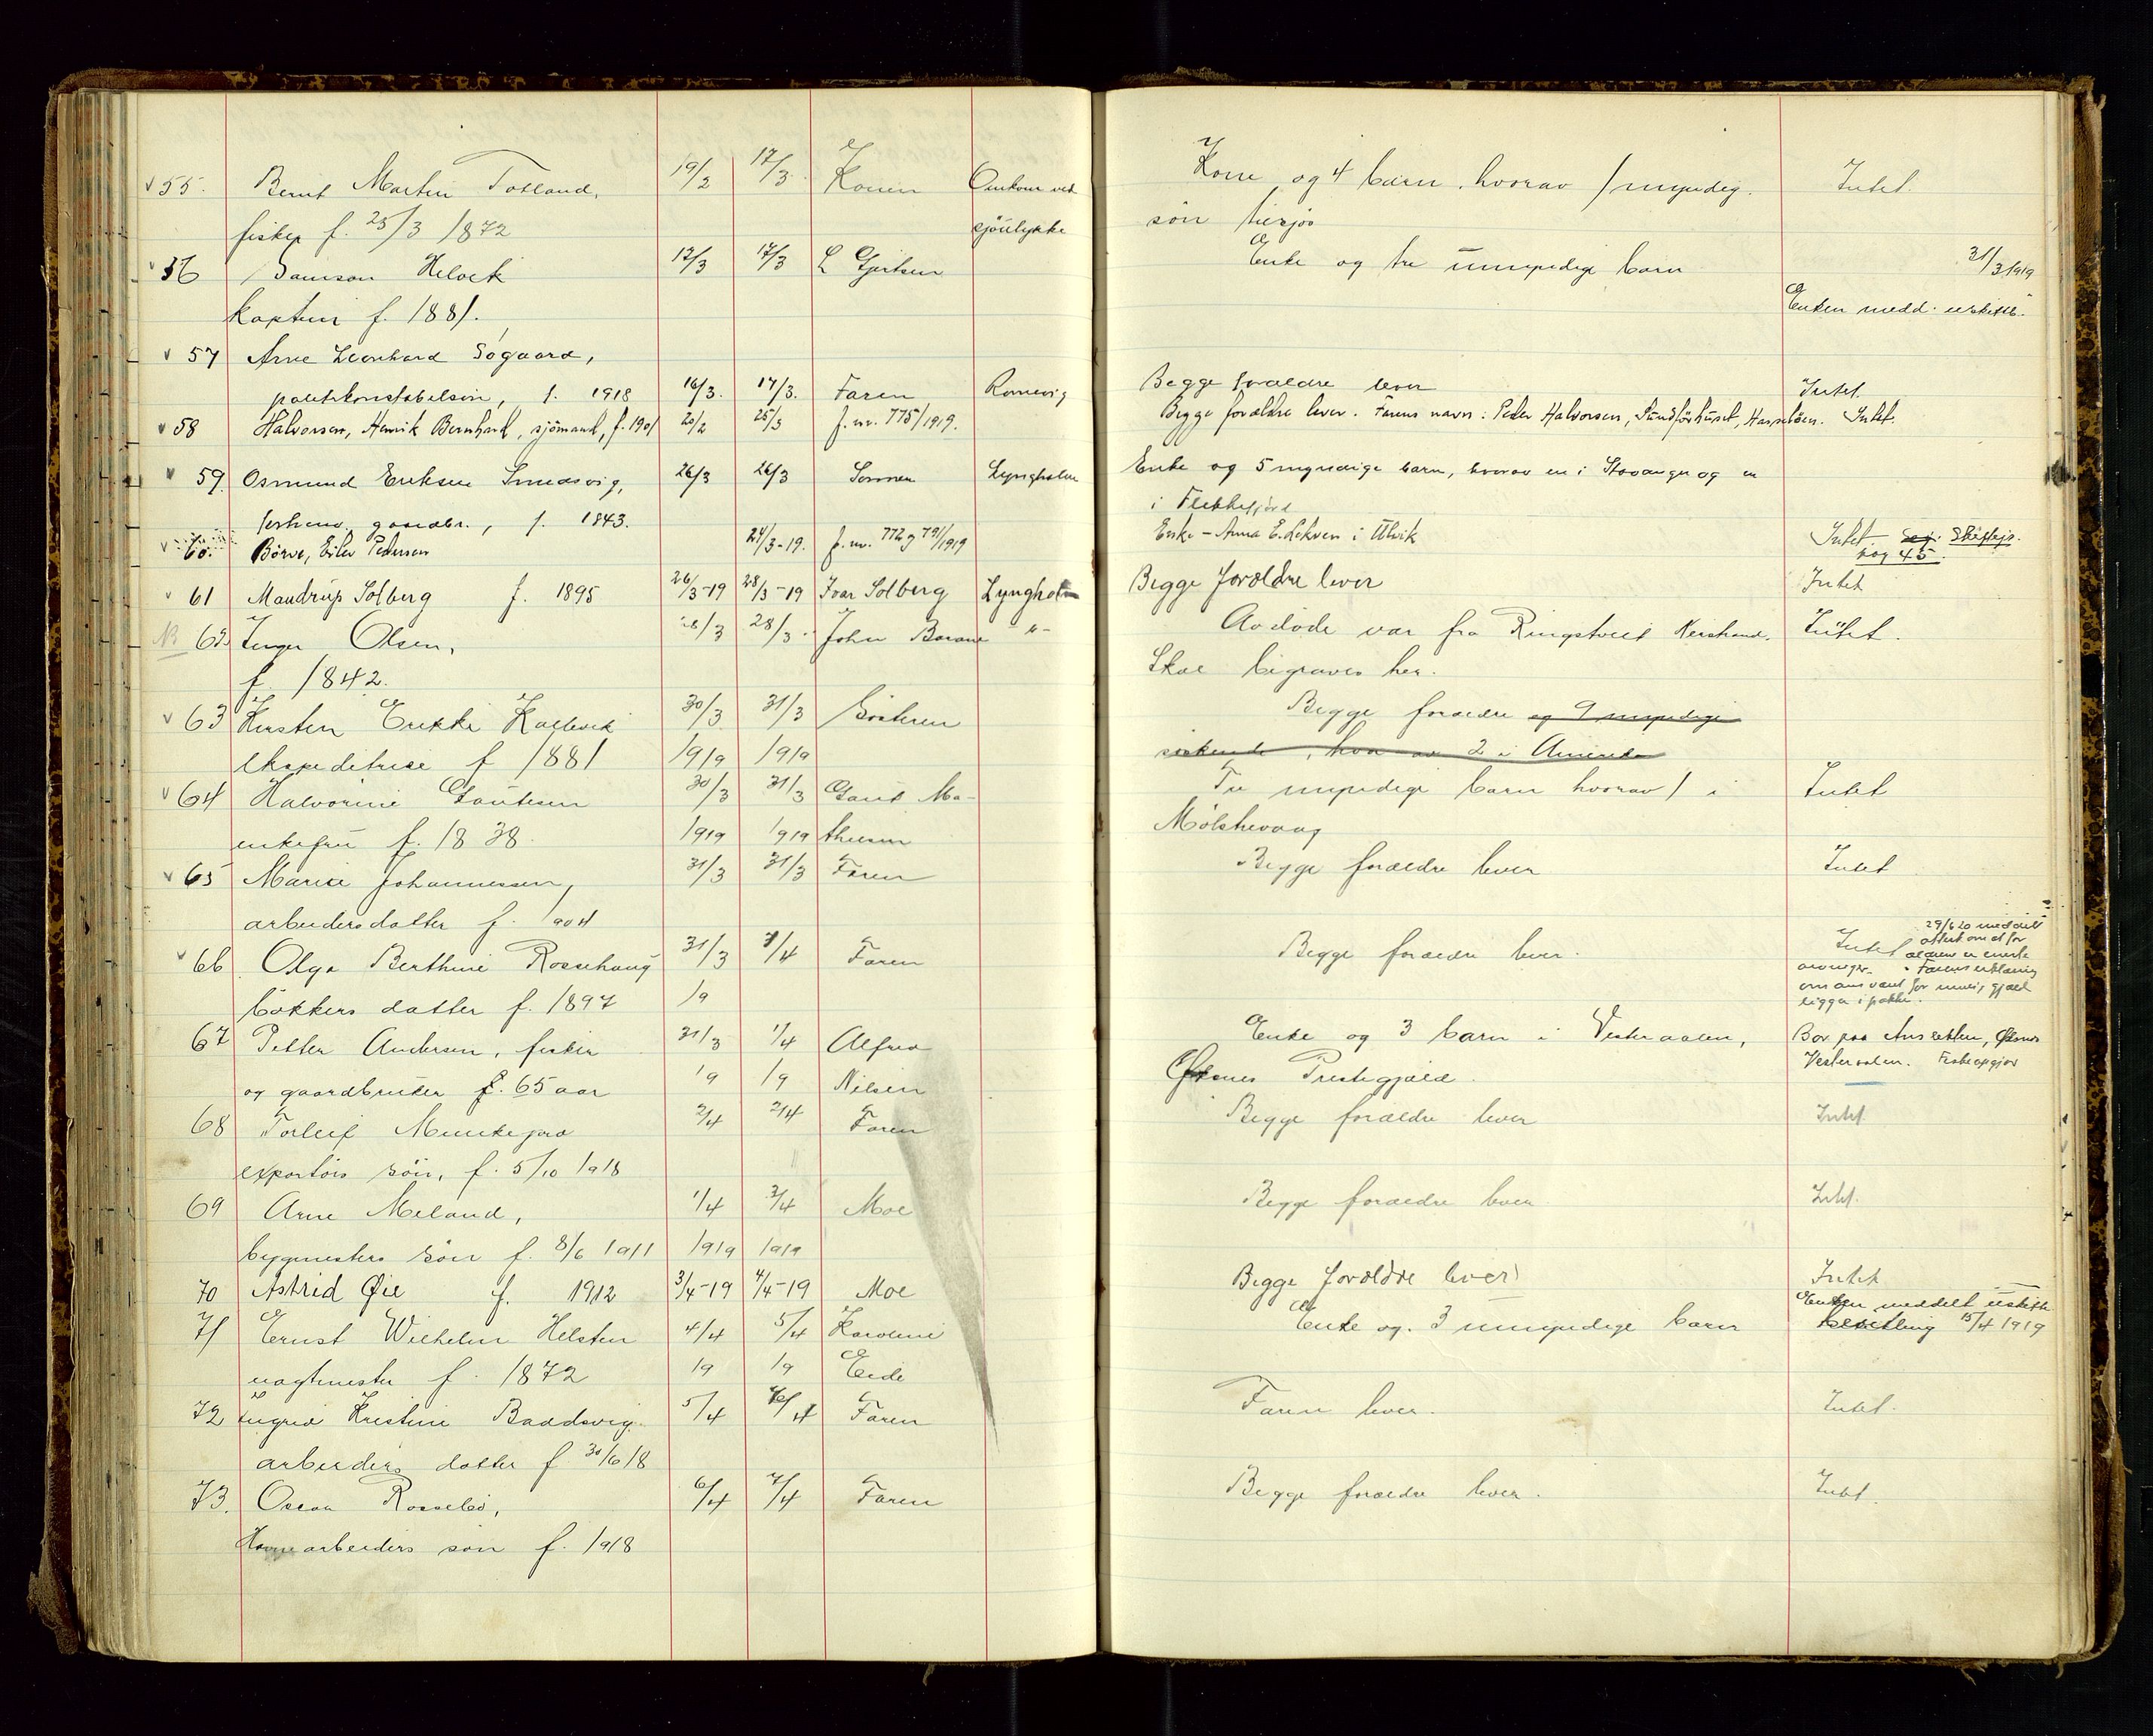 v 55. Bernt Martin Totland, 19/2 17/3. Konen Omkom ved
fisker f. 25/3 1872 sjöulykke
v 56 Samson Helvek 12/3 17/3 L Gjertsen
kaptein f. 1881.
v 57 Arne Leonhard Søgaard,
politikonstabelsön, f. 1918 16/3. 17/3. Faren
v 58 Halvorsen, Henrik Bernhard, sjömand, f. 1901 20/2 25/3 j. nr. 775/1919.
v 59. Osmund Eriksen Smedsvig, 26/3 26/3 Sönnen Lyngholm
forhenv. gaardbr., f. 1843.
v 60. Börve, Eilev Pedersen 24/3-19. j. nr. 772 og 791/1919
v 61 Maudrup Solberg f. 1895 26/3-19 28/3-19 Ivar Solberg Lyngholm
62 Inger Olsen, 28/3 28/3. John -"-
f. 1842.
v 63 Kirsten Erikke Kallevik 30/3 31/3 Søsteren
ekspeditrise f 1881 1919 1919
v 64 Halvorine Gautesen 30/3 31/3 Gaut Ma-
enkefru f. 1838. 1919 1919 thiesen
v 65 Marie Johannessen, 31/3 31/3 Faren
arbeidersdatter f. 1904
v 66 Olga Berthine Rossehaug 31/3 1/4 Faren
bökkers datter f. 1897 19
67 Petter Andersen, fisker 31/3 1/4 Alfred
og gaardbruker f. 65 aar 19 19 Nilsen
68 Torleif Munkejord 2/4 2/4 Faren
exportörs sön, f. 5/10 1918
69 Arne Meland, 1/4 3/4 Moe
bygmesters sön f. 8/6 1911 1919 1919
70 Astrid Øie f. 1912 3/4-19 4/4-19 Moe
71 Ernst Wilhelm Helsten 4/4 5/4 Karoline
vagtmester f. 1872 19 19 Eide
72 Ingrid Kristine Baadsvig. 5/4 /4 Faren
arbeiders datter f 30/6 18
73. Oscar Rossebö, 6/4 7/4 Faren
Havnearbeiders sön f. 1918
Kone og 4 barn, hvorav 1 myndig. Intet.
sön tilsjös
Enke og tre umyndige barn 31/3 1919
Enken medd. uskifte.
Begge forældre lever Intet.
Begge forældre lever. Farens navn: Peder Halvorsen, Hasselöen. Intet.
Enke og 5 myndige barn, hvorav en i Stavanger og en
i Flekkefjord
Enke - Anna E. Lekven i Ulvik Intet. Skiftepr.
pag 45.
Begge forældre lever Intet
Avdöde var fra Ringstveit Nerstrand. Intet.
Skal begraves her.
Begge forældre og 9 myndige
søskende, hvor av 2 i Amerika
Tre myndige barn hvorav 1 i Intet
Mölstrevaag
Begge forældre lever Intet
Begge forældre lever. Intet 29/6 20 meddelt
attest om at for
ældrene er eneste
arvinger. Farens erklæring
om ansvaret for mulig gjæld
ligger i pakke.
Enke og 3 barn i Vesteraalen, Bor paa Øksnes
Øksnes Prestegjæld. Vesteraalen. Fiskeopgjör
Begge forældre lever Intet.
Begge forældre lever Intet.
Begge forældre lever Intet
Enke og 3 umyndige barn Enken meddelt uskifte
bevilling 15/4 1919
Faren lever. Intet.
Begge forældre lever. Intet.